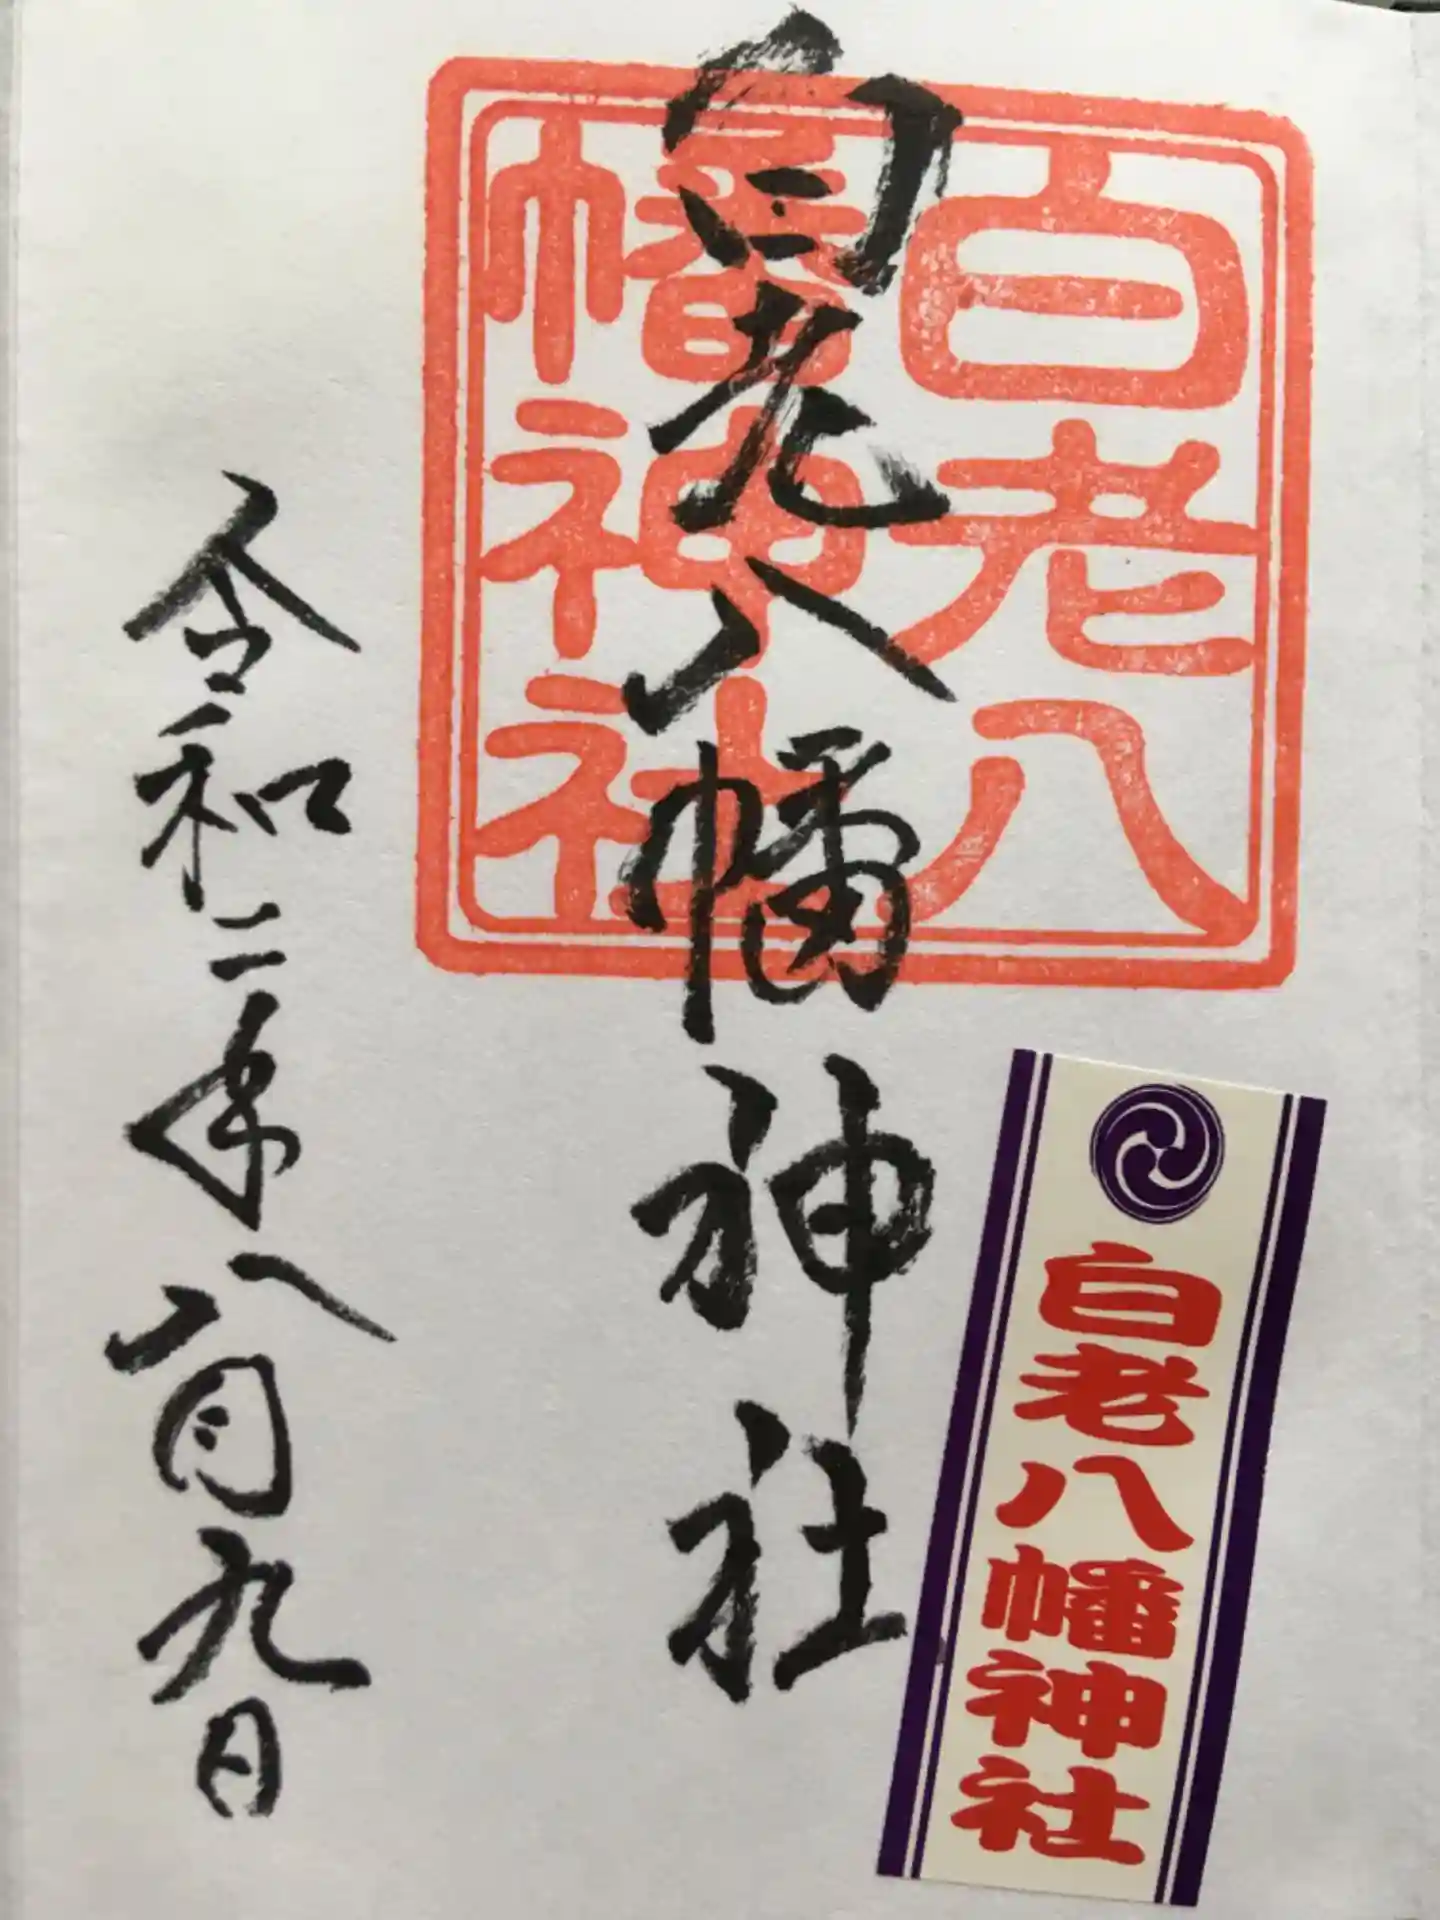 白老八幡神社
白老八
幡神社
白老八幡神社
令和二年八月九日